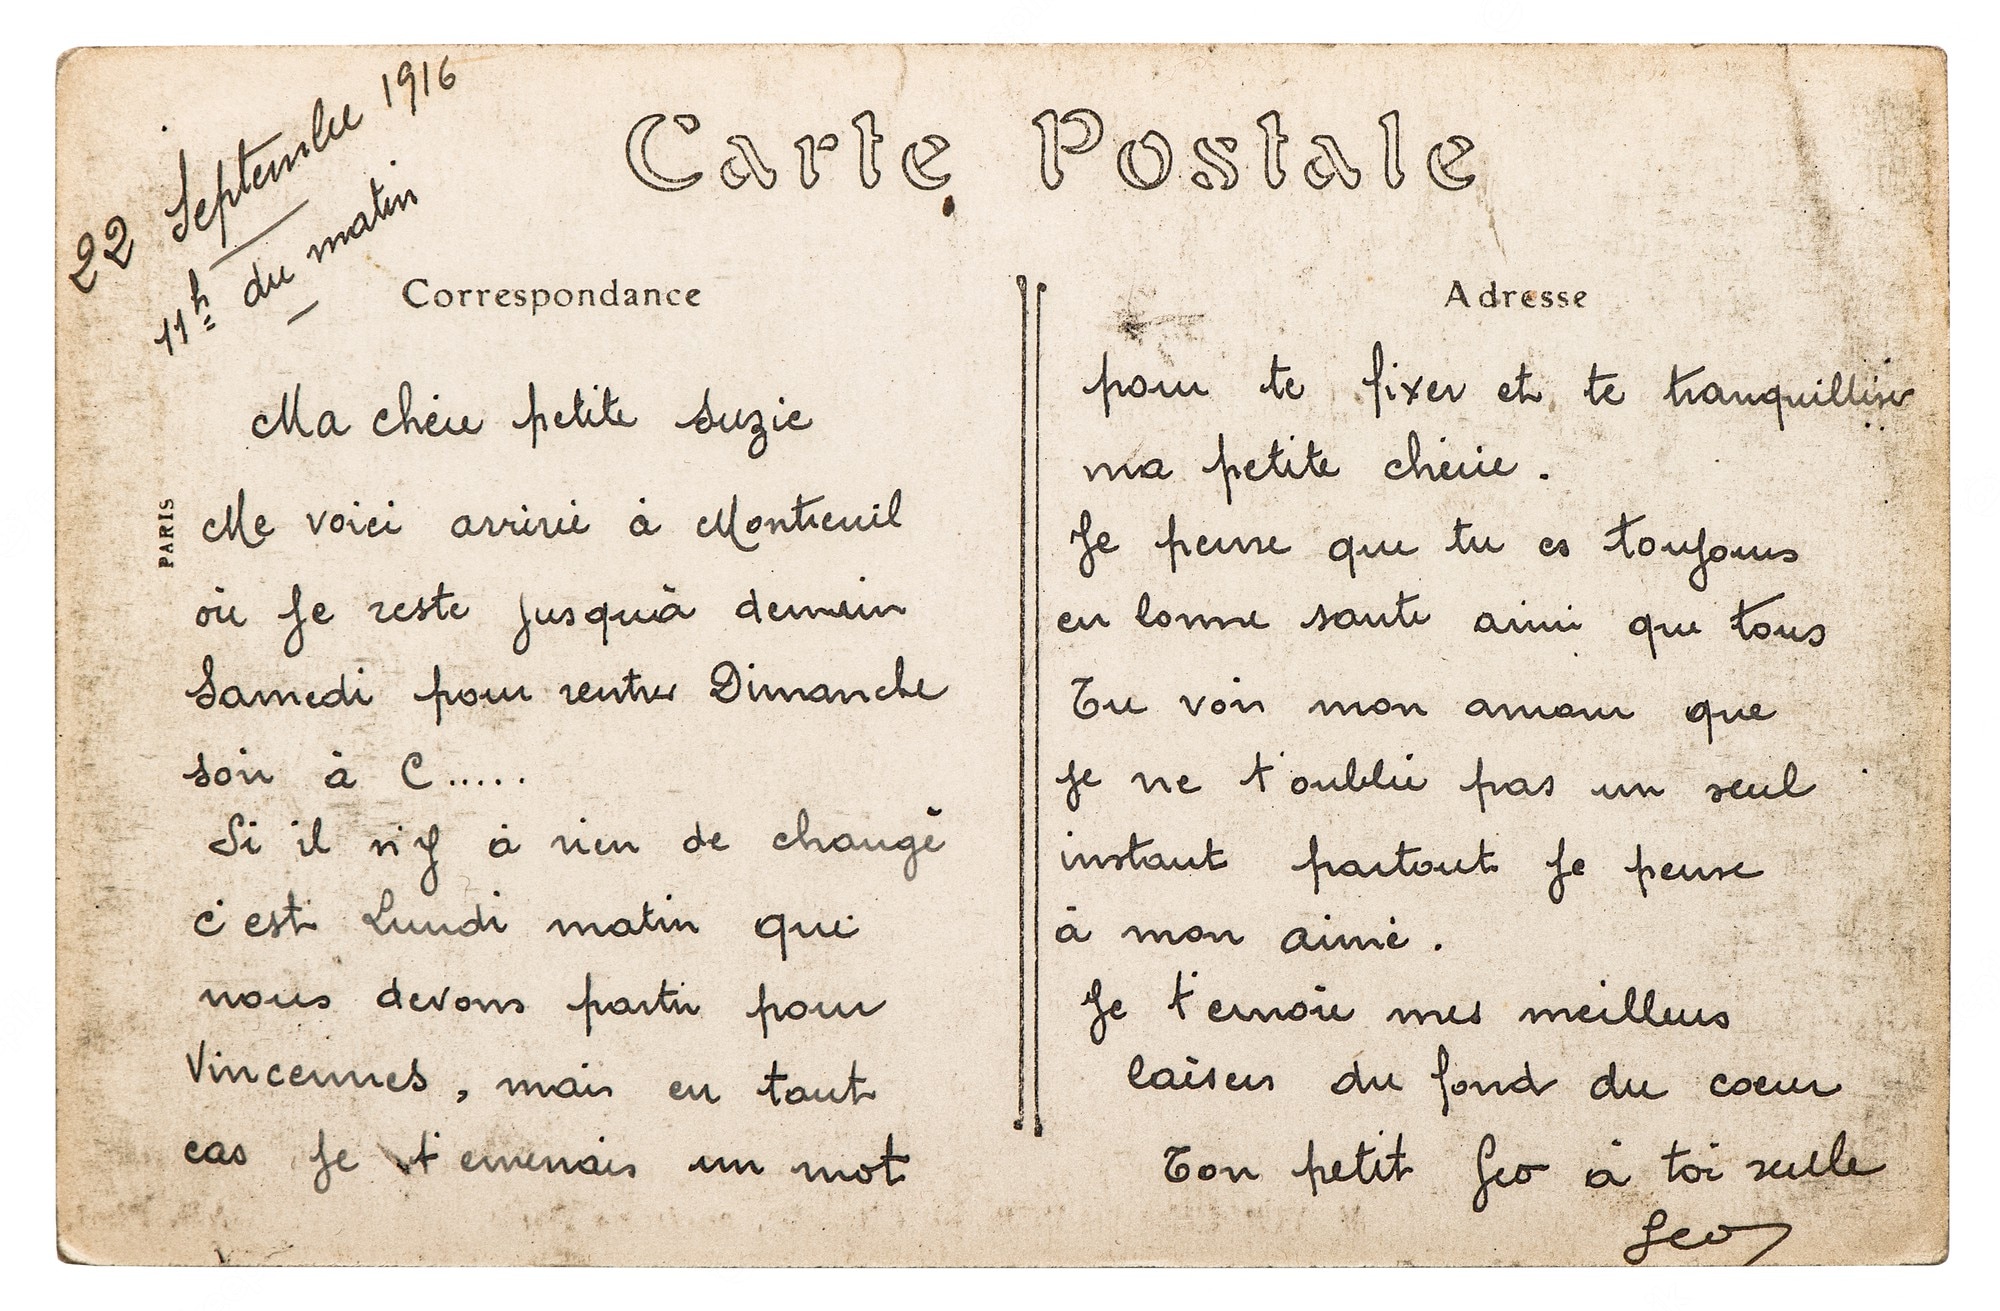 22 Septembre 1916
11h du matin
Carte Postale
Correspondance
PARIS
Ma chérie petite Suzie
Me voici arrivé à Montreuil
où je reste jusquà demain
Samedi pour rentrer Dimanche
soir à C.....
Si il n'y à rien de changé
c'est Lundi matin que
nous devons partir pour
Vincennes, mais en tout
cas je t' un mot
Adresse
pour te fixer et te tranquilliser
ma petite chérie.
Je pense que tu es toujours
en bonne sante ainsi que tous
Tu vois mon amour que
je ne t'oublie pas un seul
instant partout je pense
à mon aimé.
Je t'envoie mes meilleurs
baisers du fond du coeur
Ton petit Geo à toi seule
Geo